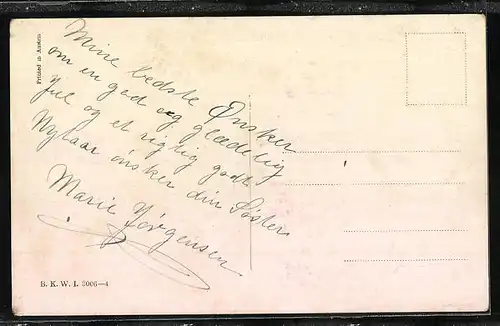 Mine bedste Ønsker
om en god og glædelig
Jul og et rigtig godt
Nytaar ønsker din Søster
Marie Jørgensen
Printed in Austria
B. K. W. I. 3006—4